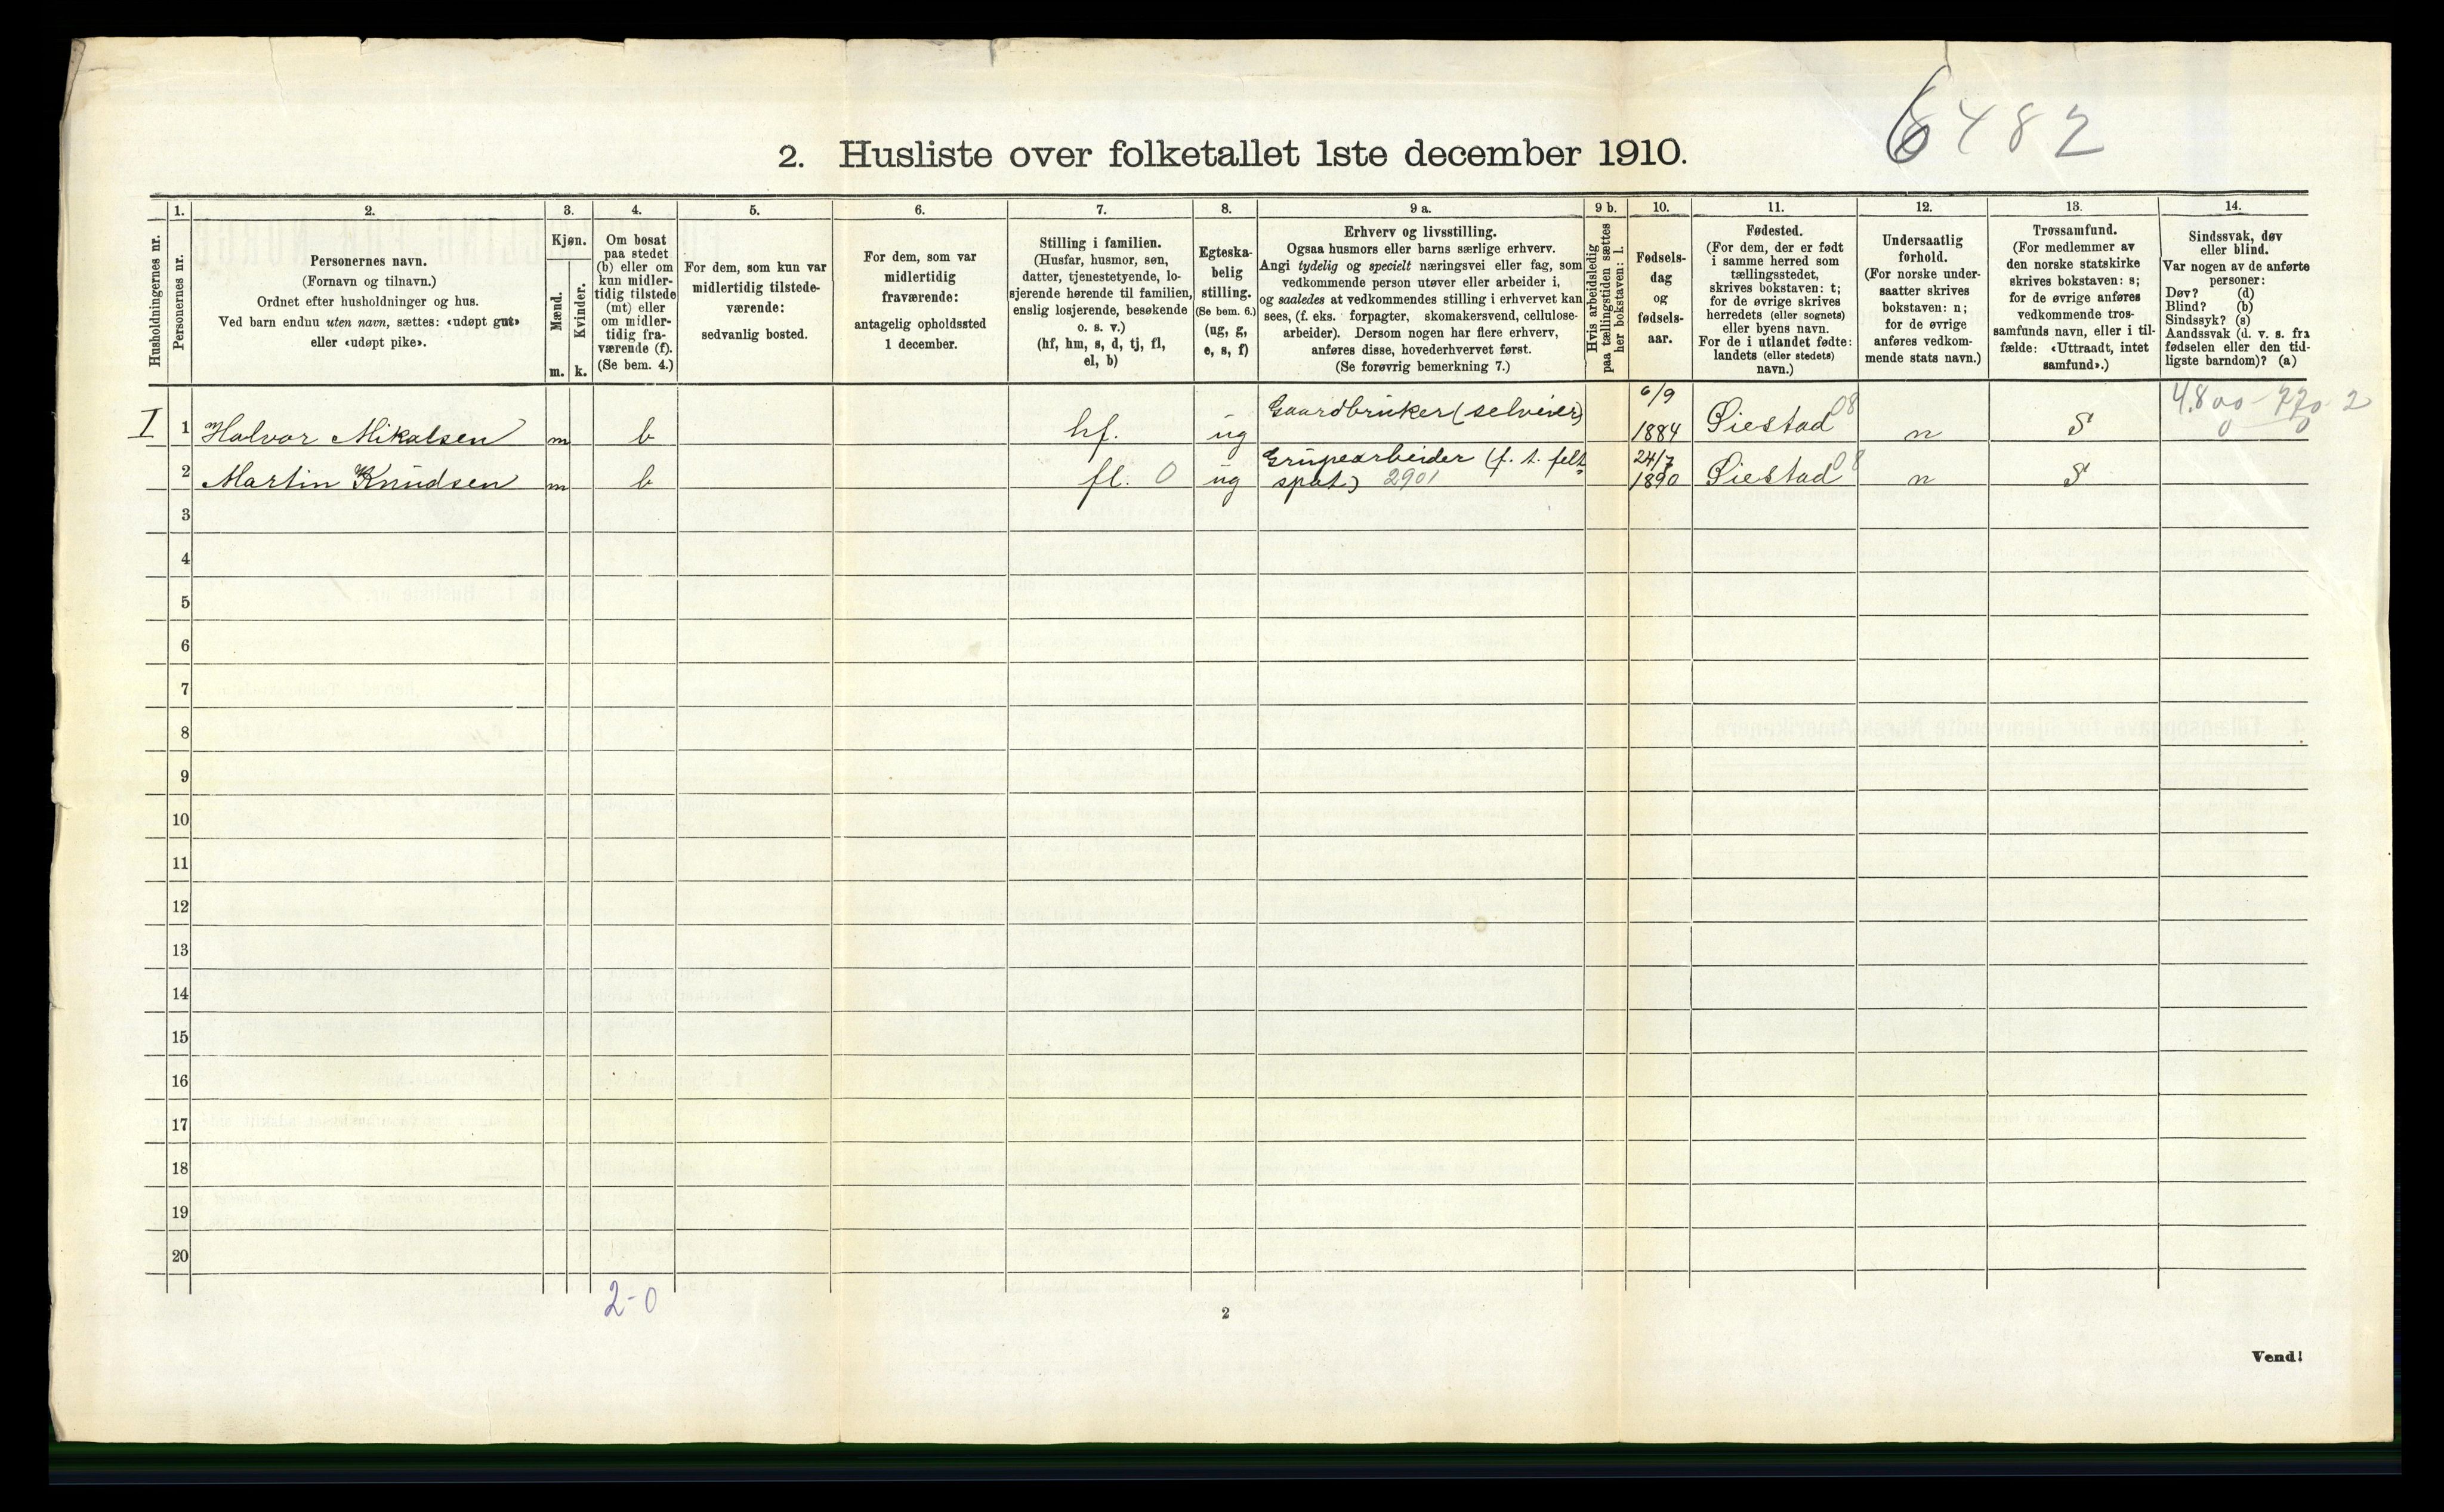 6482
2. Husliste over folketallet 1ste december 1910.
Husholdningernes nr.
1.
Personernes nr.
2.
Personernes navn.
(Fornavn og tilnavn.)
Ordnet efter husholdninger og hus.
Ved barn endnu uten navn, sættes: «udøpt gut»
eller «udøpt pike».
3.
Kjøn.
Mænd.
Kvinder.
m. k.
4.
Om bosat
paa stedet
(b) eller om
kun midler-
tidig tilstede
(mt) eller
om midler-
tidig fra-
værende (f).
(Se bem. 4.)
5.
For dem, som kun var
midlertidig tilstede-
værende:
sedvanlig bosted.
6.
For dem, som var
midlertidig
fraværende:
antagelig opholdssted
1 december.
7.
Stilling i familien.
(Husfar, husmor, søn,
datter, tjenestetyende, lo-
sjerende hørende til familien,
enslig losjerende, besøkende
o. s. v.)
(hf, hm, s, d, tj, fl,
el, b)
8.
Egteska-
belig
stilling.
(Se bem. 6.)
(ug, g,
e, s, f)
9 a.
Erhverv og livsstilling.
Ogsaa husmors eller barns særlige erhverv.
Angi tydelig og specielt næringsvei eller fag, som
vedkommende person utøver eller arbeider i,
og saaledes at vedkommendes stilling i erhvervet kan
sees, (f. eks. forpagter, skomakersvend, cellulose-
arbeider). Dersom nogen har flere erhverv,
anføres disse, hovederhvervet først.
(Se forøvrig bemerkning 7.)
9 b.
Hvis arbeidsledig
paa tællingstiden sættes
her bokstaven: l.
10.
Fødsels-
dag
og
fødsels-
aar.
11.
Fødested.
(For dem, der er født
i samme herred som
tællingsstedet,
skrives bokstaven: t;
for de øvrige skrives
herredets (eller sognets)
eller byens navn.
For de i utlandet fødte:
landets (eller stedets)
navn.)
12.
Undersaatlig
forhold.
(For norske under-
saatter skrives
bokstaven: n;
for de øvrige
anføres vedkom-
mende stats navn.)
13.
Trossamfund.
(For medlemmer av
den norske statskirke
skrives bokstaven: s;
for de øvrige anføres
vedkommende tros-
samfunds navn, eller i til-
fælde: «Uttraadt, intet
samfund».)
14.
Sindssvak, døv
eller blind.
Var nogen av de anførte
personer:
Døv? (d)
Blind? (b)
Sindssyk? (s)
Aandssvak (d. v. s. fra
fødselen eller den tid-
ligste barndom)? (a)
I 1 Halvor Mikalsen m b hf. ug Gaardbruker (selveier) 6/9 1884 Øiestad 08 n S
2 Martin Knudsen m b fl. 0 ug Grupearbeider (f. t. felt=
spat) 2901 24/7 1890 Øiestad 08 n S
3
4
5
6
7
8
9
10
11
12
13
14
15
16
17
18
19
20
2-0
2
Vend!